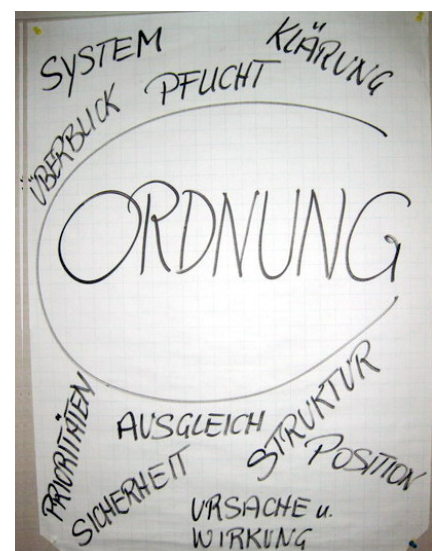 SYSTEM
KLÄRUNG
PFLICHT
ÜBERBLICK
ORDNUNG
PRIORITÄTEN
AUSGLEICH
STRUKTUR
POSITION
SICHERHEIT
URSACHE u.
WIRKUNG